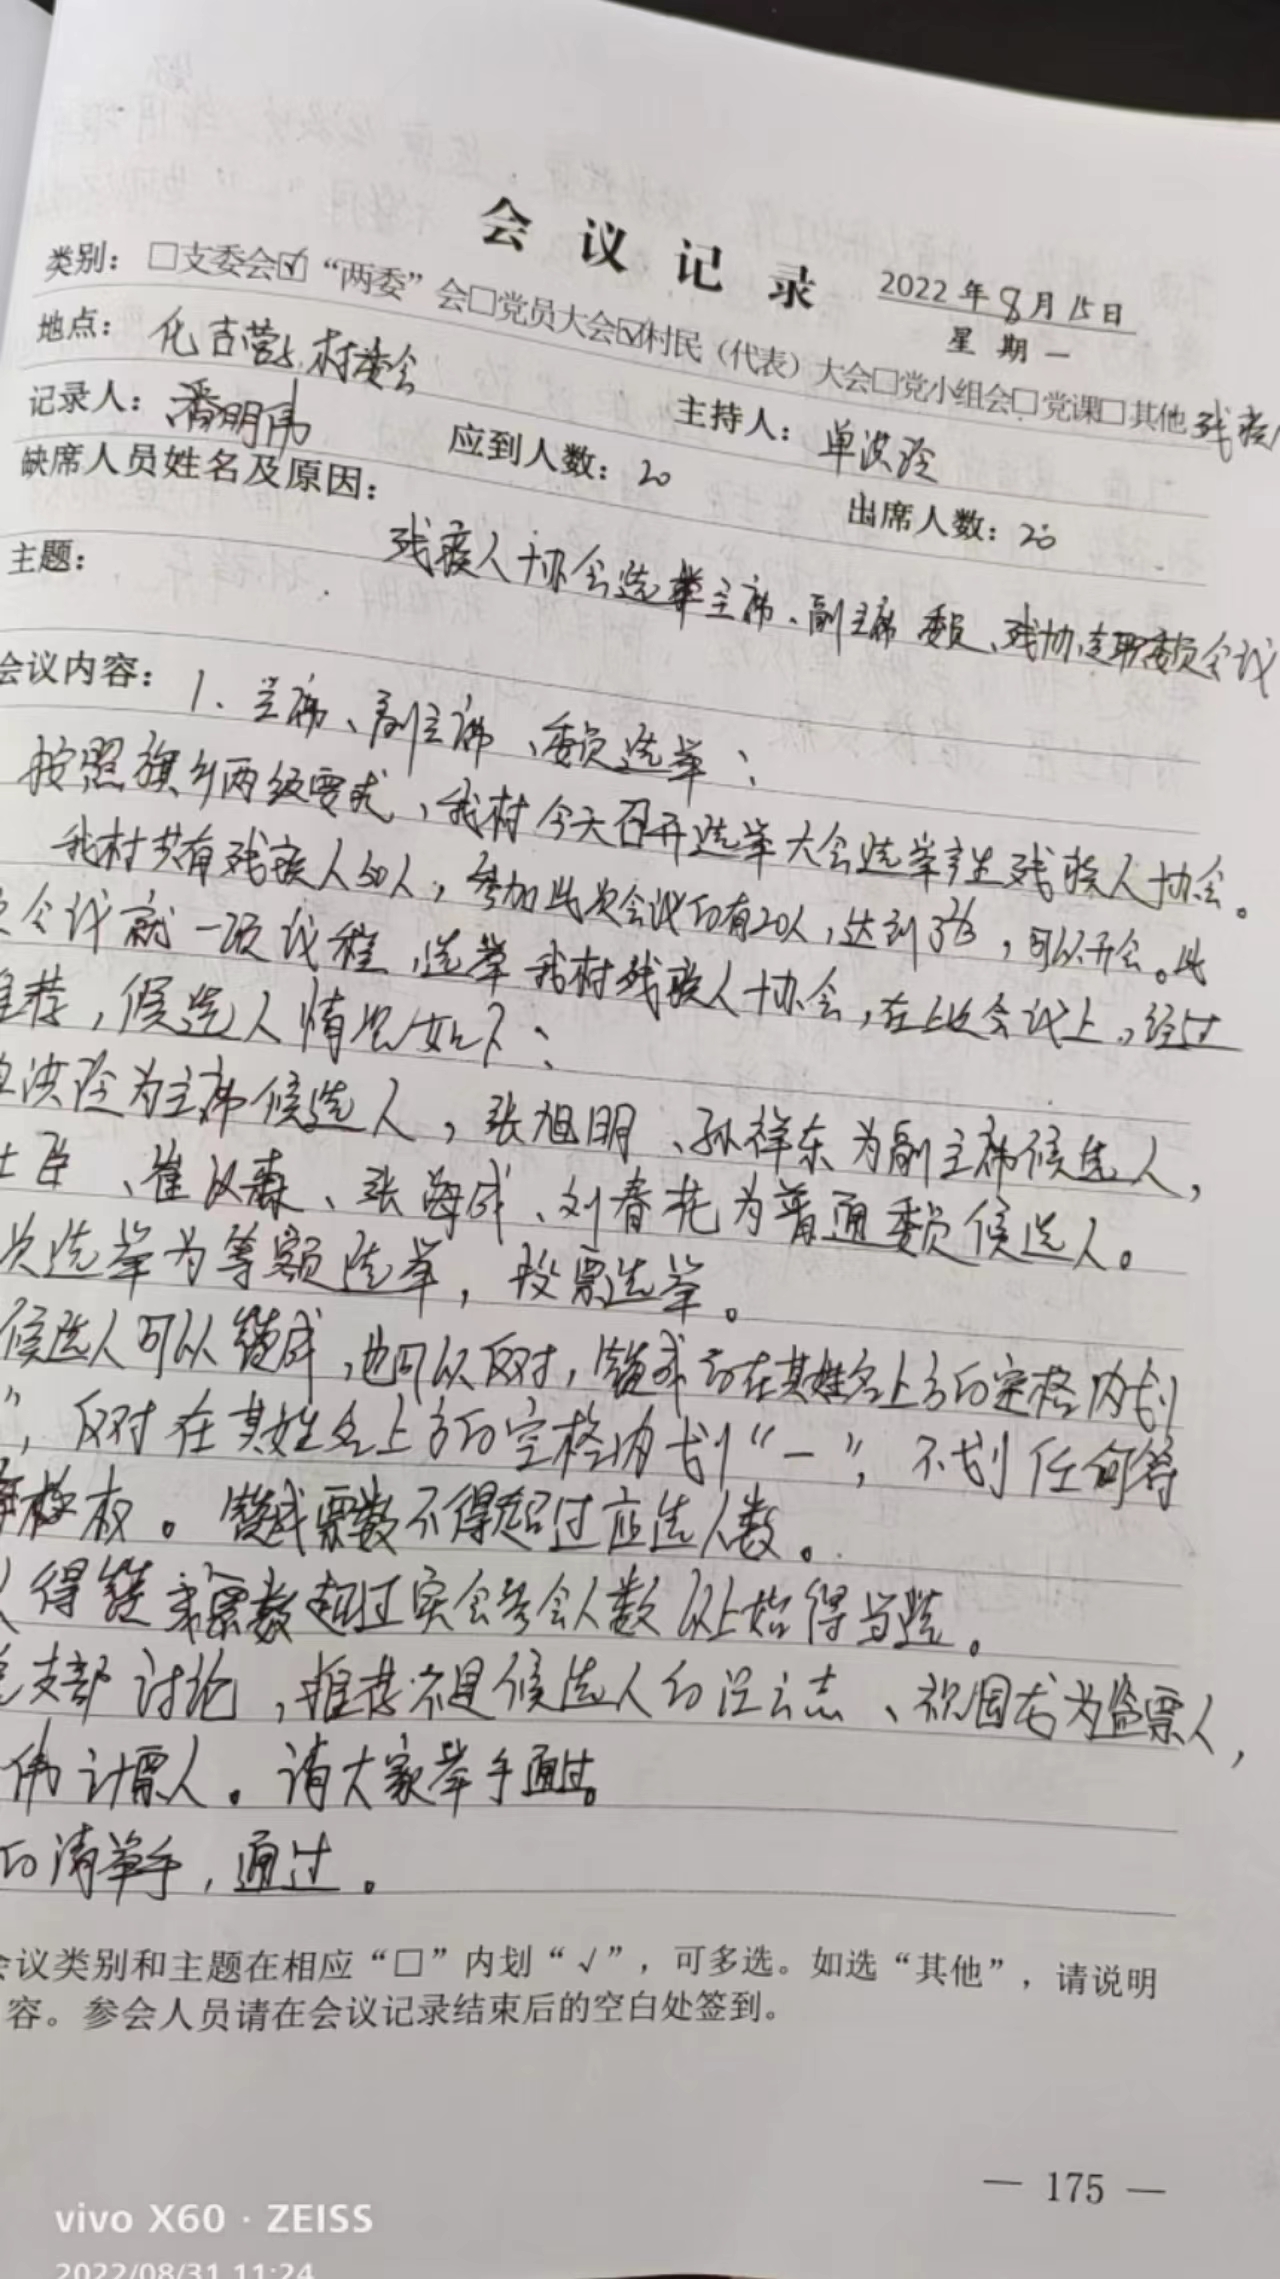 会议记录
2022年8月15日
星期一
类别：□支委会☑“两委”会□党员大会☑村民（代表）大会□党小组会□党课□其他 残疾
地点：化吉营子村委会
主持人：单洪玲
记录人：潘明伟
应到人数：20
出席人数：20
缺席人员姓名及原因：
主题：残疾人协会选举主席、副主席 委员、残协专职委员会议
会议内容：1、主席、副主席、委员选举：
按照旗乡两级要求，我村今天召开选举大会选举产生残疾人协会。
我村共有残疾人30人，参加此次会议的有20人，达到2/3，可以开会。此
会议就一项议程，选举我村残疾人协会，在上次会议上，经过
推荐，候选人情况如下：
洪玲为主席候选人，张旭明、孙祥东为副主席候选人，
、崔汉森、张海成、刘春花为普通委员候选人。
次选举为等额选举，投票选举。
候选人可以赞成，也可以反对，赞成的在其姓名上方的空格内划
”，反对在其姓名上方的空格内划“一”，不划任何符
权。赞成票数不得超过应选人数。
得赞成票数超过实会参会人数 以上始得当选。
支部讨论，推荐不是候选人的 志、祝国 为监票人，
伟计票人。请大家举手通过。
的请举手，通过。
会议类别和主题在相应“□”内划“√”，可多选。如选“其他”，请说明
容。参会人员请在会议记录结束后的空白处签到。
— 175 —
vivo X60 · ZEISS
2022/08/31 11:24